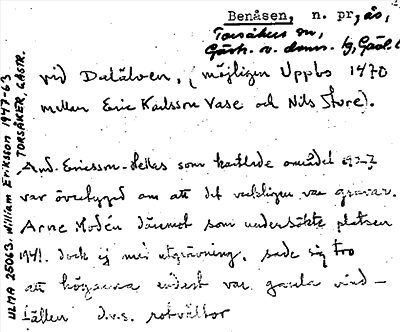 Benåsen, n. pr., ås,
Torsåkers sn,
Gästr. o. doms. fg, Gävl. l
vid Dalälven, (möjligen Uppbo 1470
mellan Eric Karlsson Vase och Nils Sture).
And. Ericsson-Hellas som kartlade området
var övertygad om att det verkligen var gravar.
Arne Modén däremot som undersökte platsen
1941. dock ej med utgrävning. sade sig tro
att högarna endast var gamla vind-
fällen d.v.s. rotvältor
ULMA 25063. William Eriksson 1947-63
TORSÅKER, GÄSTR.